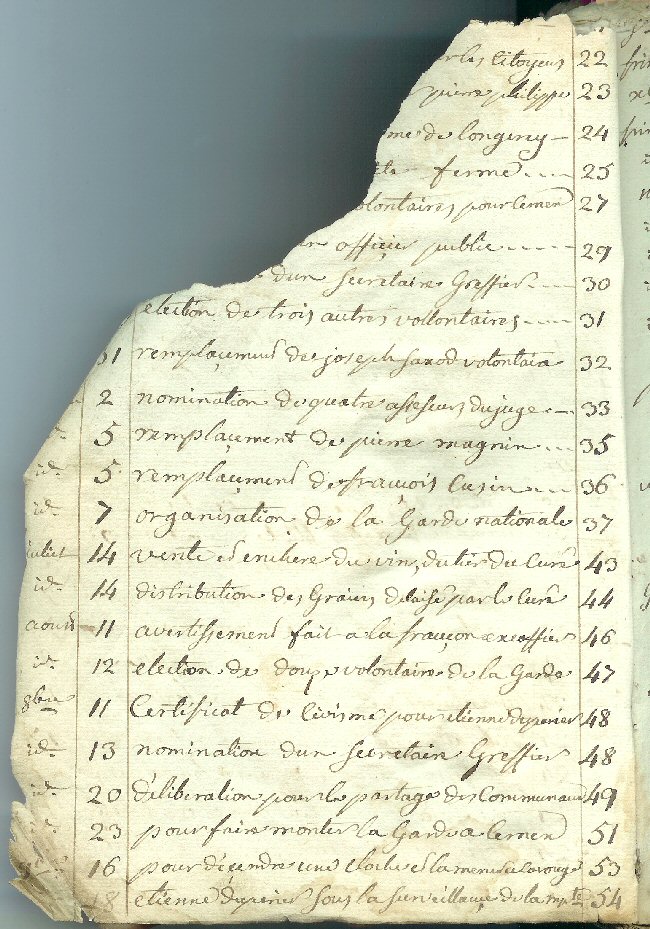 les Citoyens 22
pierre philippe 23
me de longerey 24
ferme 25
olontaires pour lemen 27
officier public 29
dun Secretaire Greffier 30
election de trois autres vollontaires 31
31 remplaçement de joseph Saxod volontaire 32
2 nomination de quatre assesseurs du juge 33
5 remplaçement de pierre magnin 35
id. 5 remplaçement de francois Cusin 36
id. 7 organisation de la Garde nationale 37
juillet 14 vente et enchere du vin, du curé 43
id. 14 distribution des Grains delaisé par le Curé 44
aoust 11 avertissement fait a la 46
id. 12 election de douze volontaire de la Garde 47
8bre 11 Certificat de Civisme pour etienne duperier 48
id. 13 nomination dun Secretaire Greffier 48
id. 20 déliberation pour le partage des Communaux 49
id. 23 pour faire monter la Garde a lemen 51
16 pour déçendre une cloche et la mener a 53
18 etienne duperier sous la surveillançe de la mpté 54